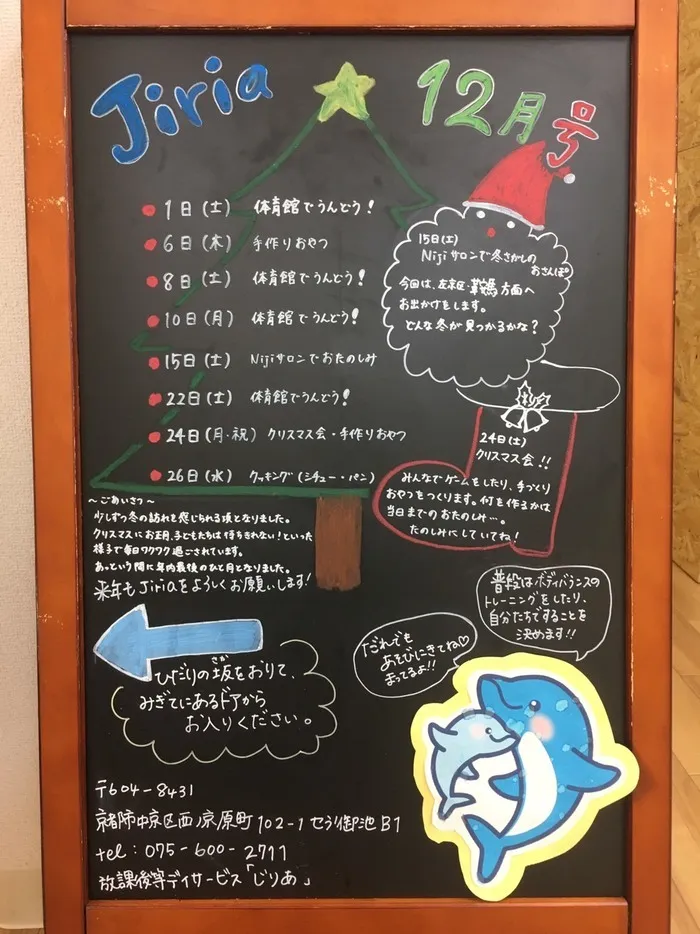 Jiria
12月号
1日(土) 体育館でうんどう!
6日(木) 手作りおやつ
8日(土) 体育館でうんどう!
10日(月) 体育館でうんどう!
15日(土) Nijiサロンでおたのしみ
22日(土) 体育館でうんどう!
24日(月・祝) クリスマス会・手作りおやつ
26日(水) クッキング(シチュー・パン)
15日(土)
Nijiサロンで冬さがしの
おさんぽ
今回は、左京区・鞍馬方面へ
お出かけをします。
どんな冬が見つかるかな?
24日(土)
クリスマス会!!
みんなでゲームをしたり、手づくり
おやつをつくります。何を作るかは
当日までのおたのしみ…。
たのしみにしていてね!
〜ごあいさつ〜
少しずつ冬の訪れを感じられる頃となりました。
クリスマスにお正月、子どもたちは待ちきれない!といった
様子で毎日ワクワク過ごされています。
あっという間に年内最後のひと月となりました。
来年もJiriaをよろしくお願いします!
普段はボディバランスの
トレーニングをしたり、
自分たちですることを
決めます!!
だれでも
あそびにきてね♡
まってるよ!!
ひだりの坂をおりて、
さか
みぎてにあるドアから
お入りください。
〒604-8431
京都市中京区西ノ京原町102-1 セラ御池B1
tel:075-600-2711
放課後等デイサービス「じりあ」